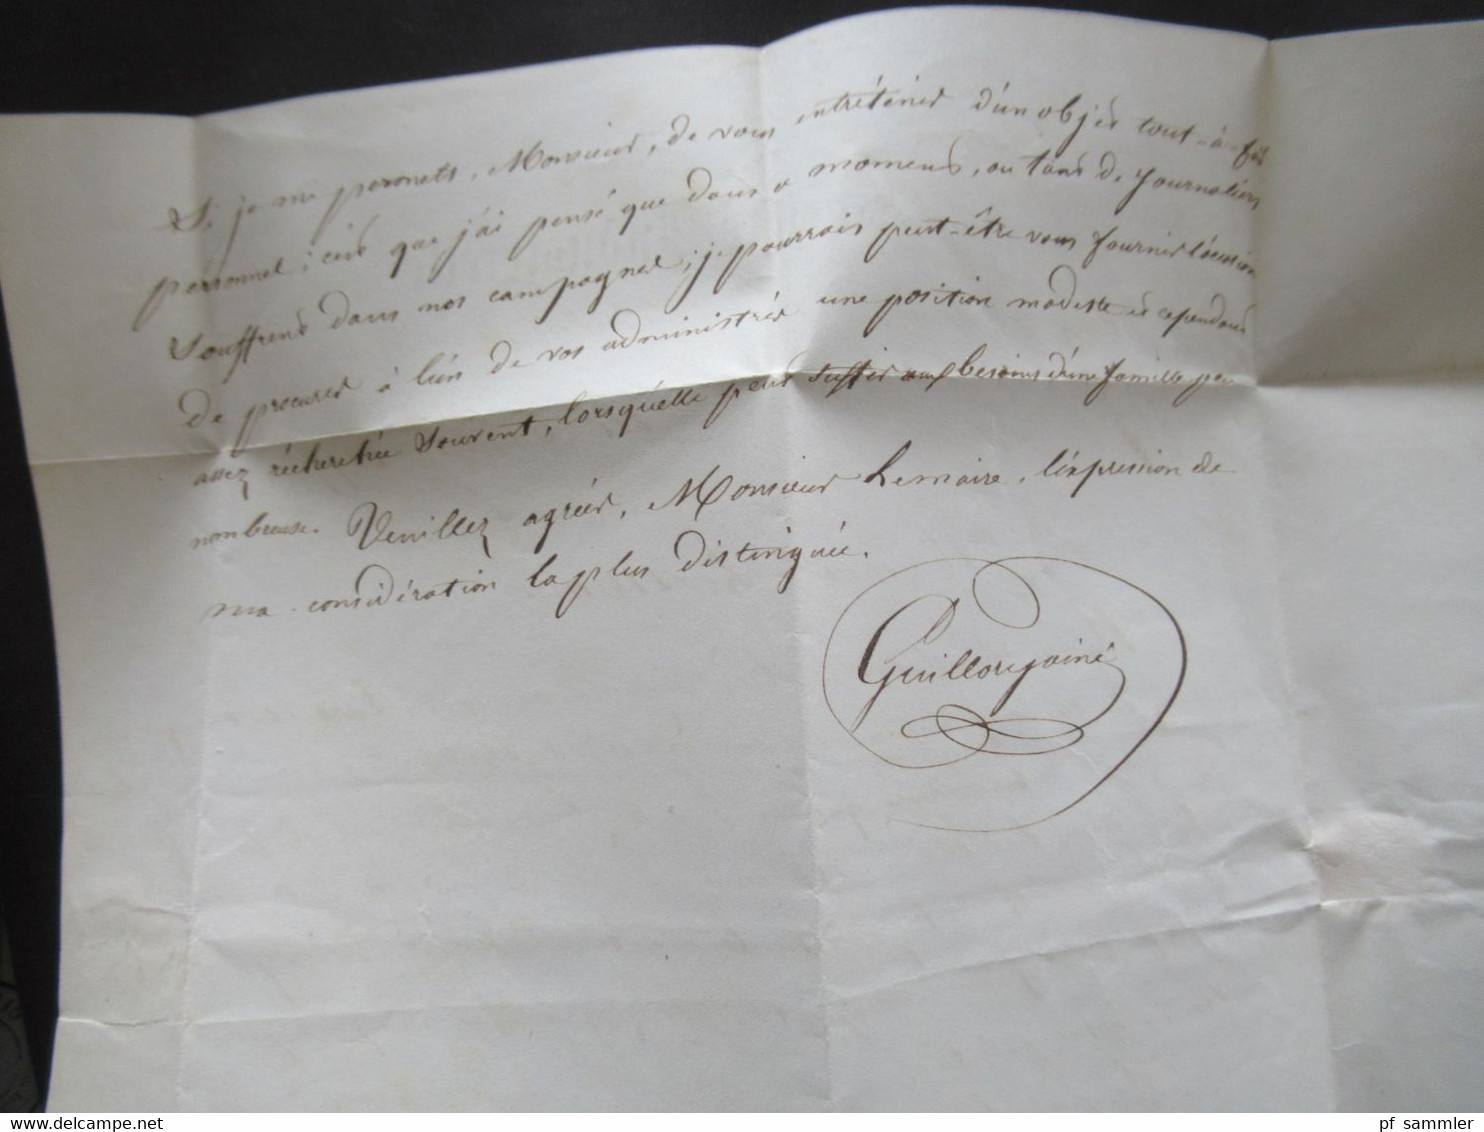 Si je me permets, Monsieur, de vous entrétenir d'un objet tout-à-fait
personnel; c'est que j'ai pensé que dans ce moment, où tant de journaliers
souffrent dans nos campagnes; je pourrais peut-être vous fournir l'occasion
de procurer à l'un de vos administrés une position modeste et cependant
assez récherchée souvent, lorsqu'elle peut suffir aux besoins d'une famille peu
nombreuse. Veuillez agréer, Monsieur Lemaire, l'éxpression de
ma considération la plus distinguée.
Guillory ainé
www.delcampe.net
pf_sammler